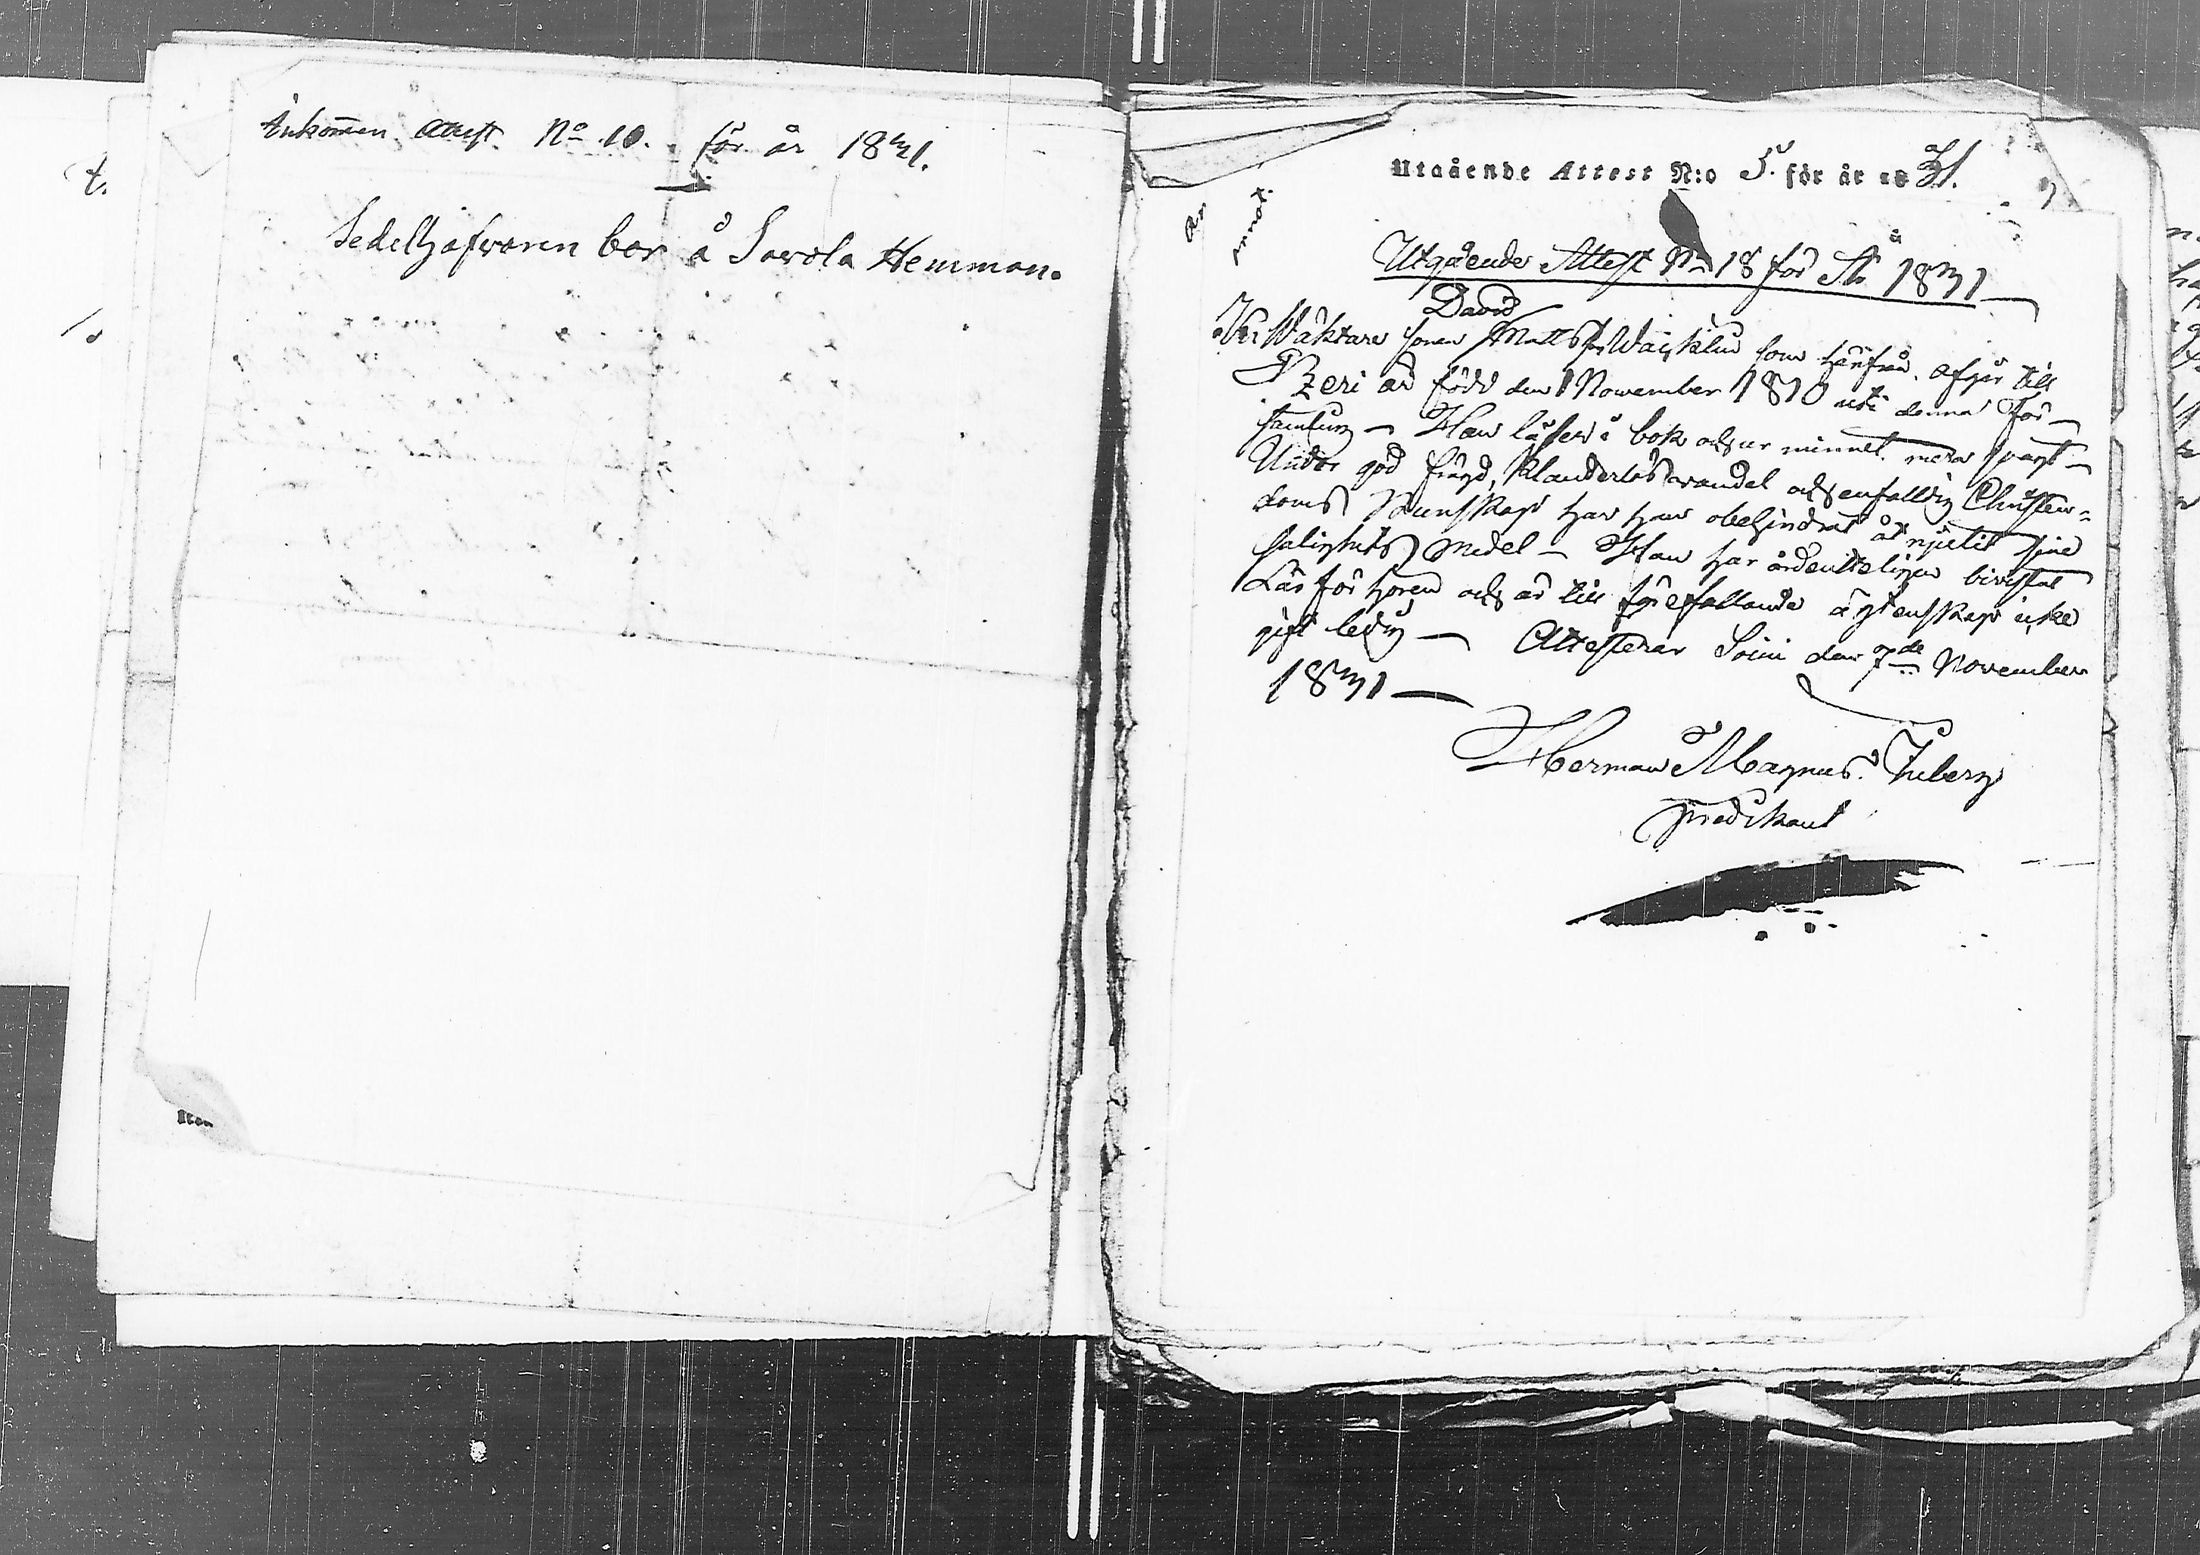 Inkommen Attest No 10. för år 1831.
Sedelhafvaren bor å Savola Hemman.
Utgående Attest N:o 5. för år 1831.
Utgående Attest No 18 för År 1831
David
Wäktare sonen Matts son Wäcklin som härifrån afgår till
är född den 1 November 1810 uti denna För-
samling — Han läser i bok och ur minnet mera svagt —
Under god frägd, klanderlös wandel och enfaldig Christen-
doms Kunskap har han obehindrat åtnjutit sine
salighets medel — Han har ordenteligen bivistat
Läsförhören och är till förefallande äktenskap icke
gift ledig — Attesterar Soini den 7de November
1831 —
Herman Magnus
Predikant